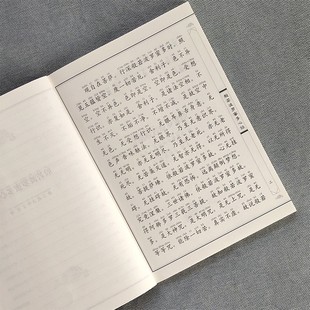 观自在菩萨,行深般若波罗蜜多时,照
见五蕴皆空,度一切苦厄。舍利子,色不异
空,空不异色,色即是空,空即是色,受想
行识,亦复如是。舍利子,是诸法空相,不
生不灭,不垢不净,不增不减。是故空中
无色,无受想行识,无眼耳鼻舌身意,无
色声香味触法,无眼界,乃至无意识界,
无无明,亦无无明尽,乃至无老死,亦无
老死尽。无苦集灭道,无智亦无得。以无所得故,
菩提萨埵,依般若波罗蜜多故,心无挂
碍,无挂碍故,无有恐怖,远离颠倒梦想,
究竟涅槃。三世诸佛,依般若波罗蜜多故,
得阿耨多罗三藐三菩提。故知般若波罗蜜
多,是大神咒,是大明咒,是无上咒,是无
等等咒,能除一切苦,真实不虚。故说般若